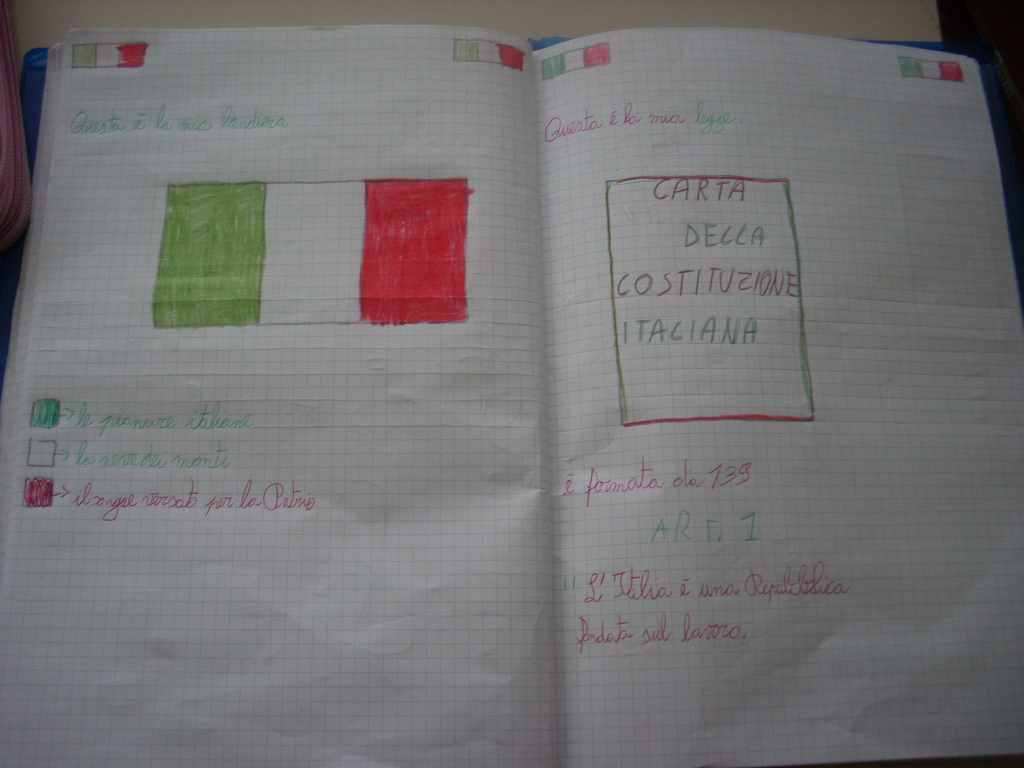 Questa è la mia bandiera
le pianure italiane
la neve dei monti
il sangue versato per la Patria
Questa é la mia legge.
CARTA
DELLA
COSTITUZIONE
ITALIANA
é formata da 139
ART. 1
" L'Italia é una Repubblica
fondata sul lavoro.